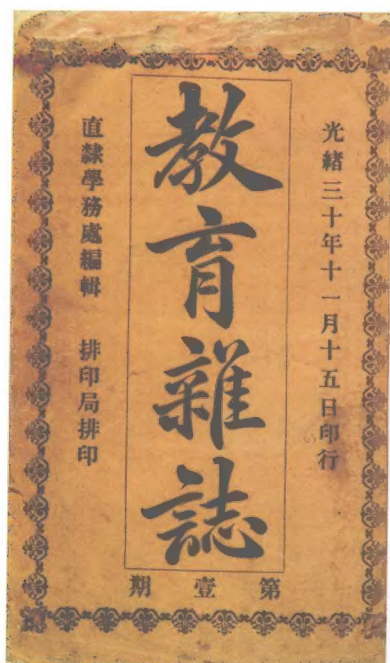 光緒三十年十一月十五日印行
教育雜誌
直隸學務處編輯 排印局排印
第壹期